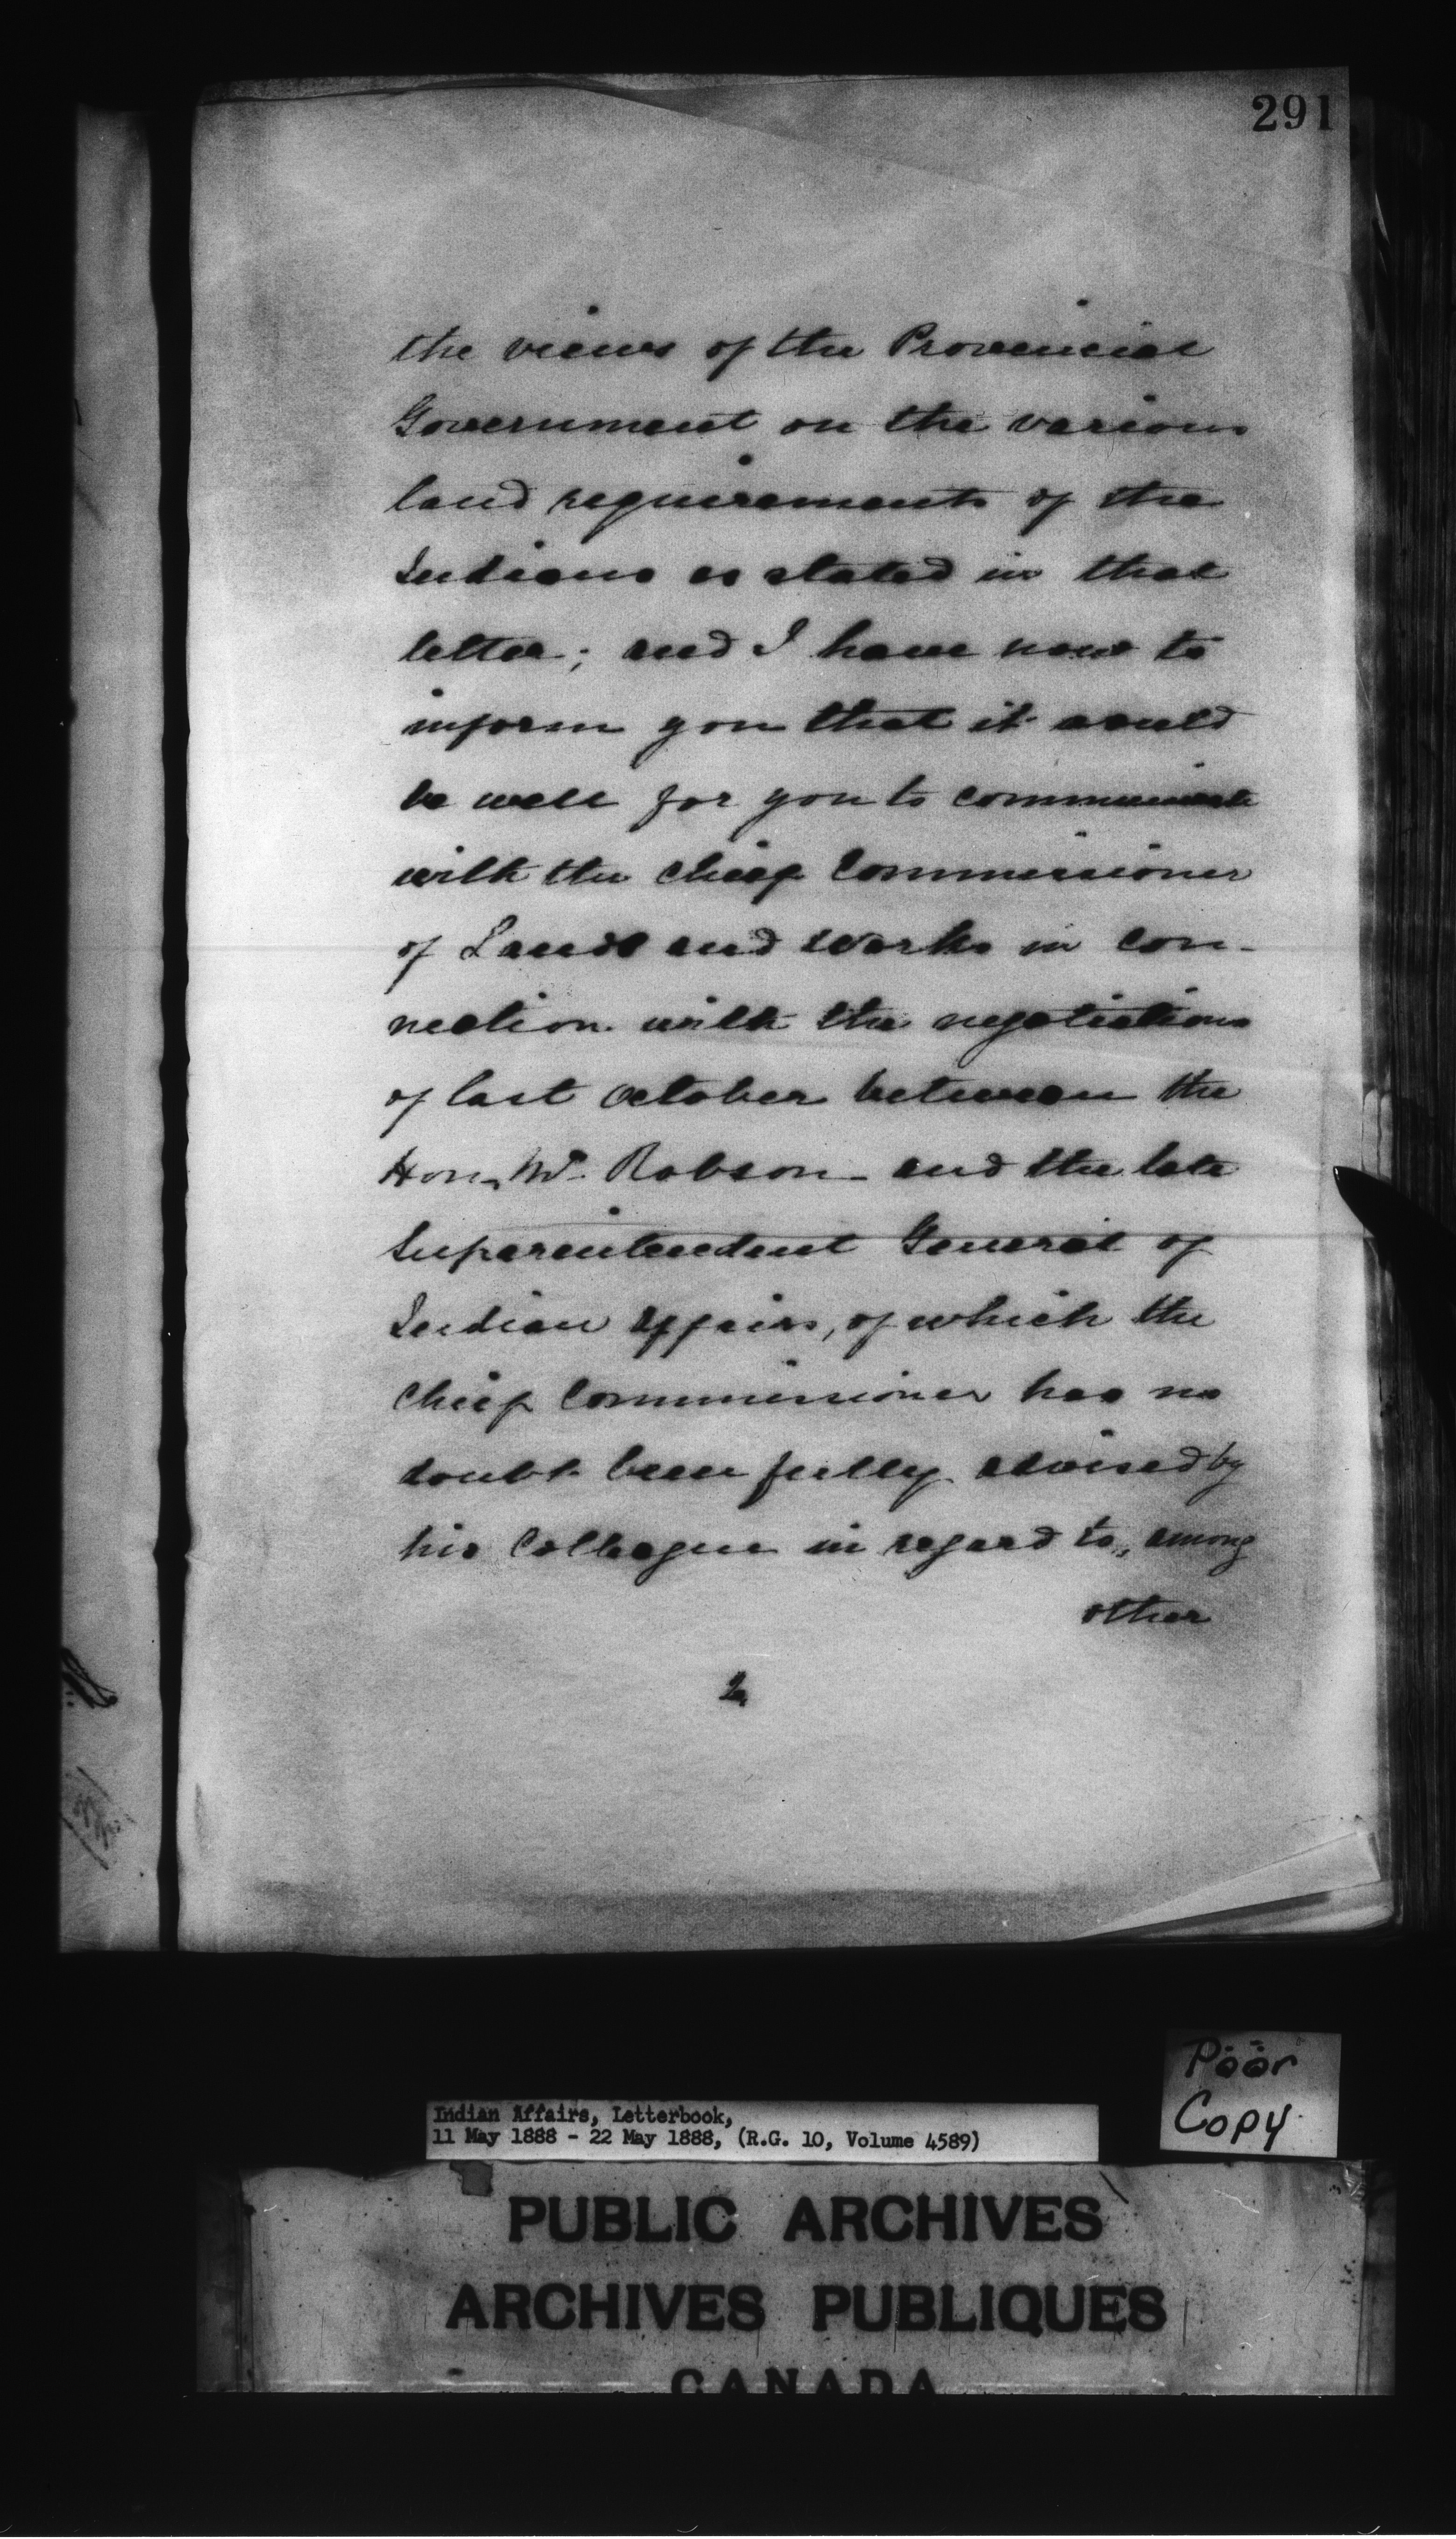 291
the views of the Provincial
Government on the various
land requirements of the
Indians as stated in that
letter; and I have now to
inform you that it would
be well for you to communicate
with the Chief Commissioner
of Lands and Works in con-
nection with the negotiations
of last October between the
Hon. Mr. Robson and the late
Superintendent General of
Indian Affairs, of which the
Chief Commissioner has no
doubt been fully advised by
his Colleague in regard to, among
other
2
Poor
Copy
Indian Affairs, Letterbook,
11 May 1888 - 22 May 1888, (R.G. 10, Volume 4589)
PUBLIC ARCHIVES
ARCHIVES PUBLIQUES
CANADA